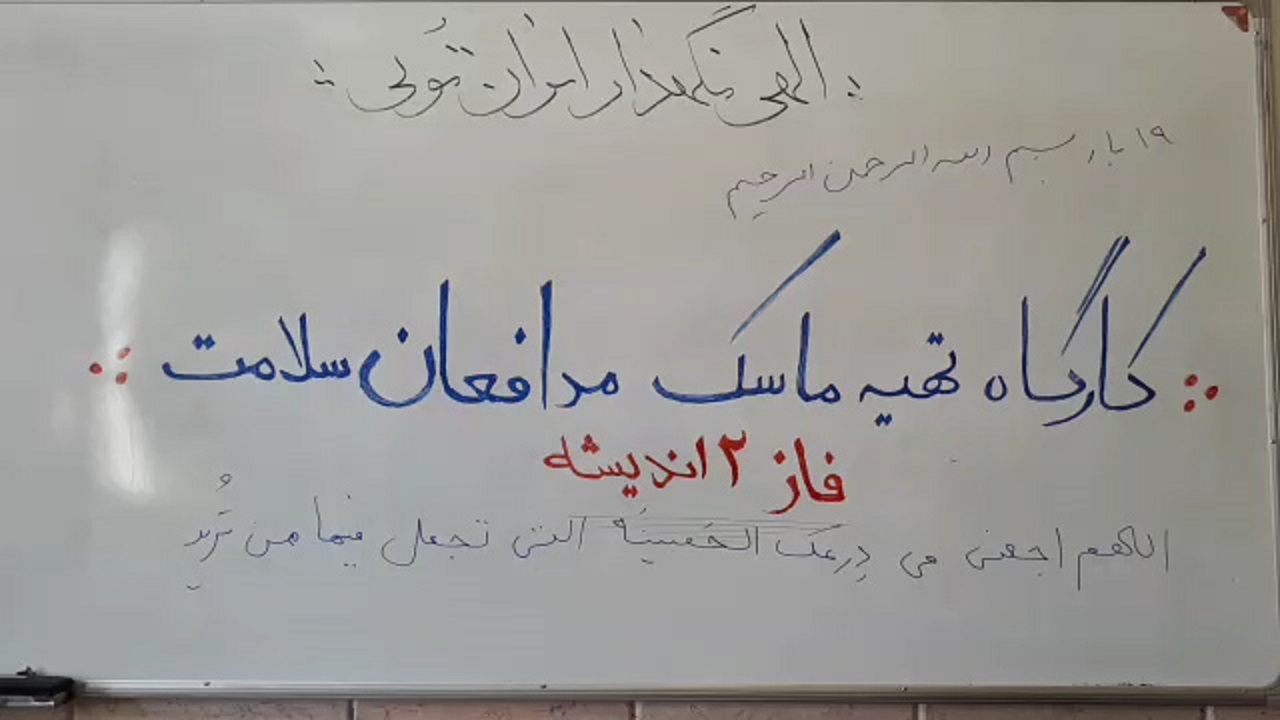 الهی نگهدار ایران تُویی
۱۹ بار بسم الله الرحمن الرحیم
کارگاه تهیه ماسک مدافعان سلامت
فاز ۲ اندیشه
اللهم اجعلنی فی دِرعک الحَصینَه التی تجعل فیها من تُرید